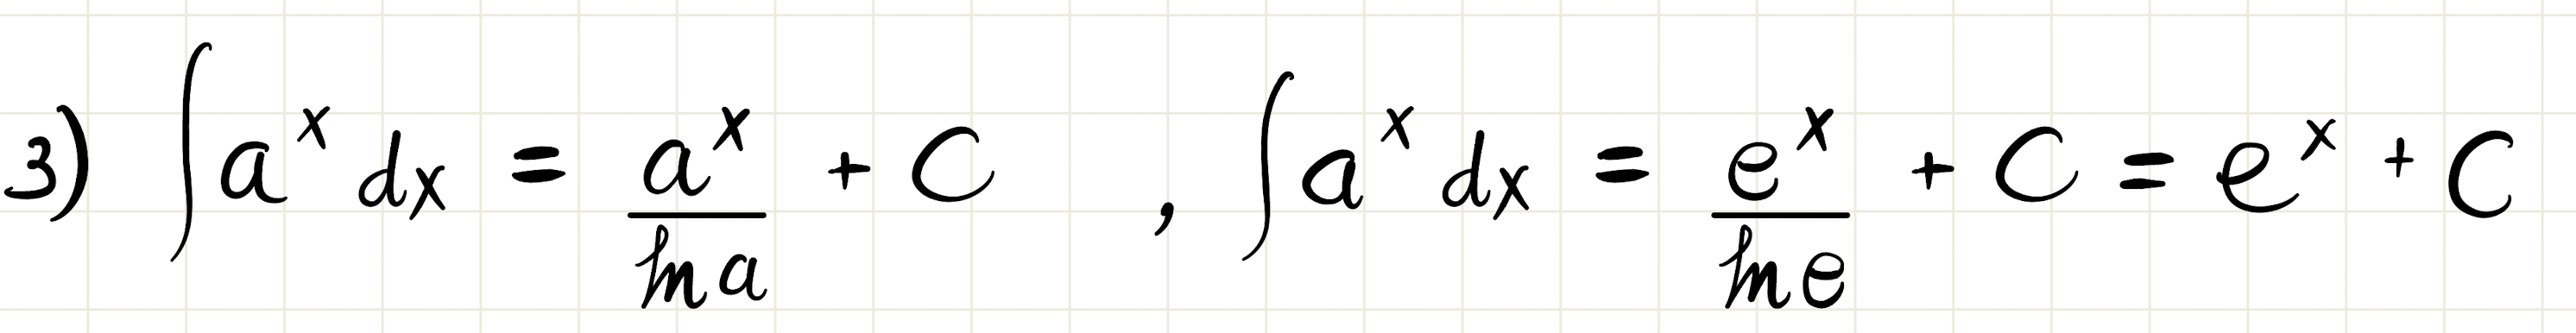 3) ∫a^x dx = a^x / ln a + C , ∫a^x dx = e^x / ln e + C = e^x + C